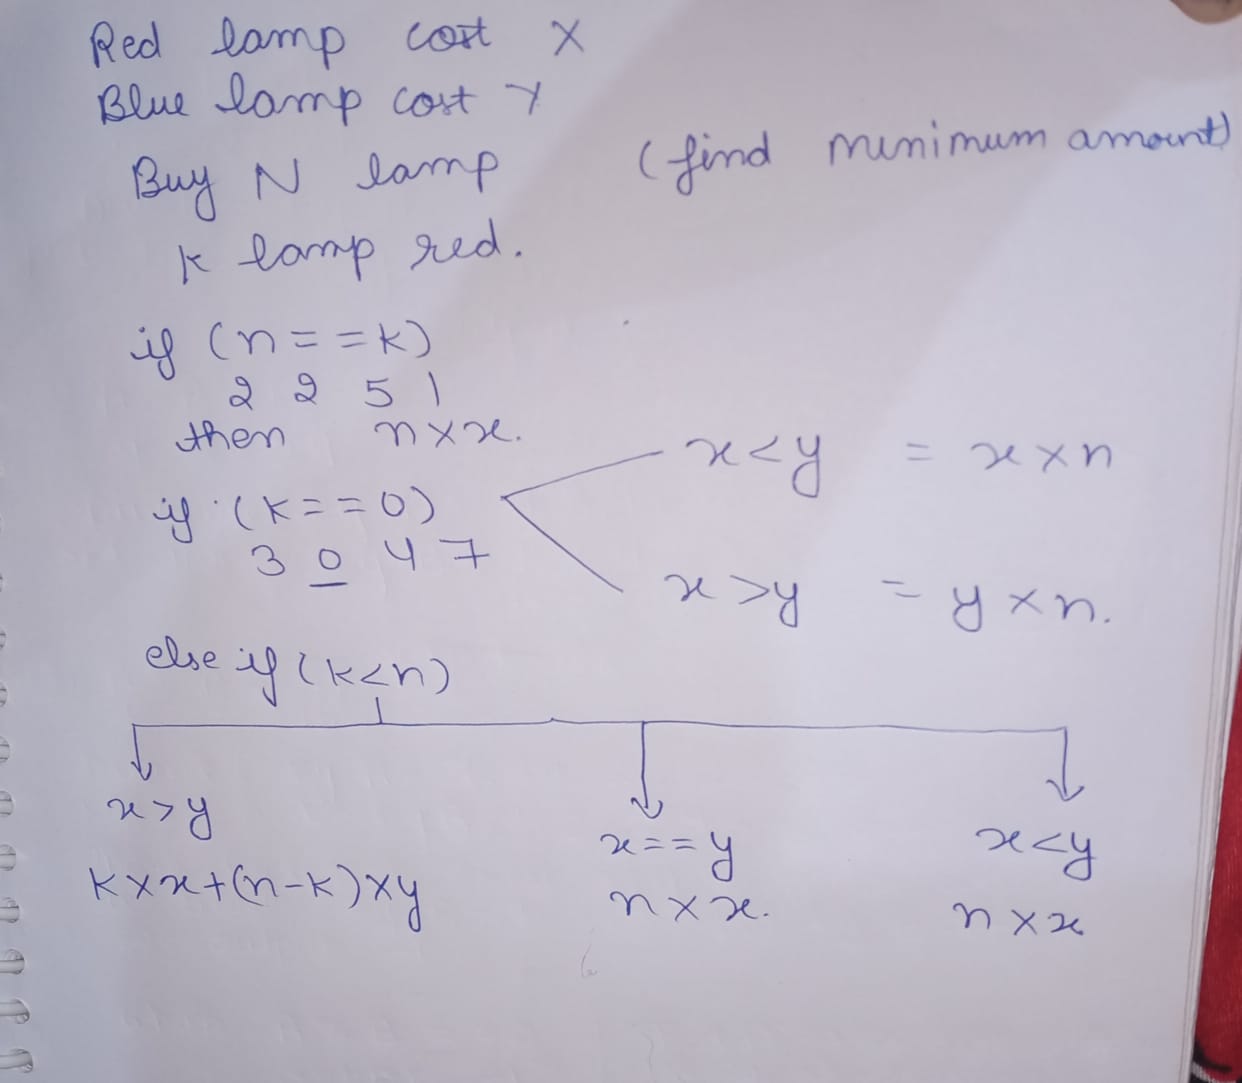 Red lamp cost X
Blue lamp cost Y
Buy N lamp (find minimum amount)
K lamp red.
if (n==k)
2 2 5 1
then n×x.
x<y = x×n
if (k==0)
3 0 4 7
x>y = y×n.
else if (k<n)
x>y
k×x+(n-k)×y
x==y
n×x.
x<y
n×x